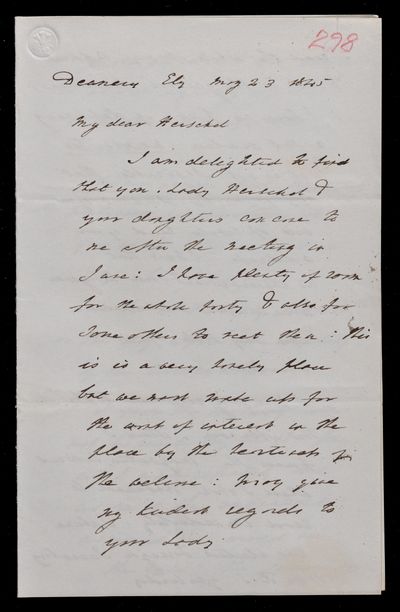 298
Deanery Ely May 23 1845
My dear Herschel
I am delighted to find
that you, Lady Herschel &
your daughters can come to
me after the meeting in
June: I have plenty of room
for the whole party & also for
some others to meet them: this
is is a very lonely place
but we must make up for
the want of interest in the
place by the heartiness of
the welcome: pray give
my kindest regards to
your Lady